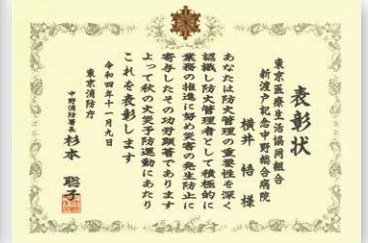 表彰状
東京医療生活協同組合
新渡戸記念中野総合病院
横井 悟 様
あなたは防火管理の重要性を深く
認識し防火管理者として積極的に
業務の推進に努め災害の発生防止に
寄与したその功労顕著であります
よって秋の火災予防運動にあたり
これを表彰します
令和四年十一月九日
東京消防庁
中野消防署長 杉本 聡子